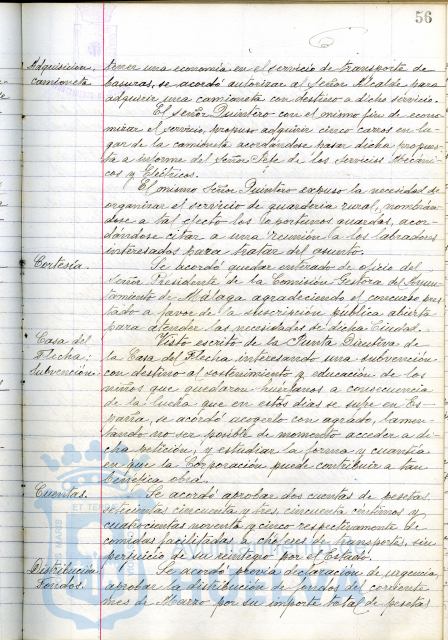 56
Adquisición camioneta
tener una economía en el servicio de transporte de
basuras, se acordó autorizar al Señor Alcalde para
adquirir una camioneta con destino a dicho servicio.
El Señor Quintero con el mismo fin de econo-
mizar el servicio, propuso adquirir cinco carros en lu-
gar de la camioneta acordándose pasar dicha propues-
ta a informe del Señor Jefe de los Servicios Mecáni-
cos y Eléctricos.
El mismo Señor Quintero expuso la necesidad de
organizar el servicio de guardería rural, nombrán-
dose a tal efecto los oportunos guardas, acor-
dándose citar a una reunión a los labradores
interesados para tratar del asunto.
Cortesía.
Se acordó quedar enterado de oficio del
Señor Presidente de la Comisión Gestora del Ayun-
tamiento de Málaga agradeciendo el concurso pres-
tado a favor de la suscripción pública abierta
para atender las necesidades de dicha Ciudad.
Casa del Flecha: Subvención.
Visto escrito de la Junta Directiva de
la Casa del Flecha interesando una subvención
con destino al sostenimiento y educación de los
niños que quedaron huérfanos a consecuencia
de la lucha que en estos días se sufre en Es-
paña, se acordó acogerlo con agrado, lamen-
tando no ser posible de momento acceder a di-
cha petición, y estudiar la forma y cuantía
en que la Corporación puede contribuir a tan
benéfica obra.
Cuentas.
Se acordó aprobar dos cuentas de pesetas
seiscientas cincuenta y tres, cincuenta céntimos y
cuatrocientas noventa y cinco respectivamente de
comidas facilitadas a choferes de transportes, sin
perjuicio de su reintegro por el Estado.
Distribución Fondos.
Se acordó previa declaración de urgencia,
aprobar la distribución de fondos del corriente
mes de Marzo por su importe total de pesetas